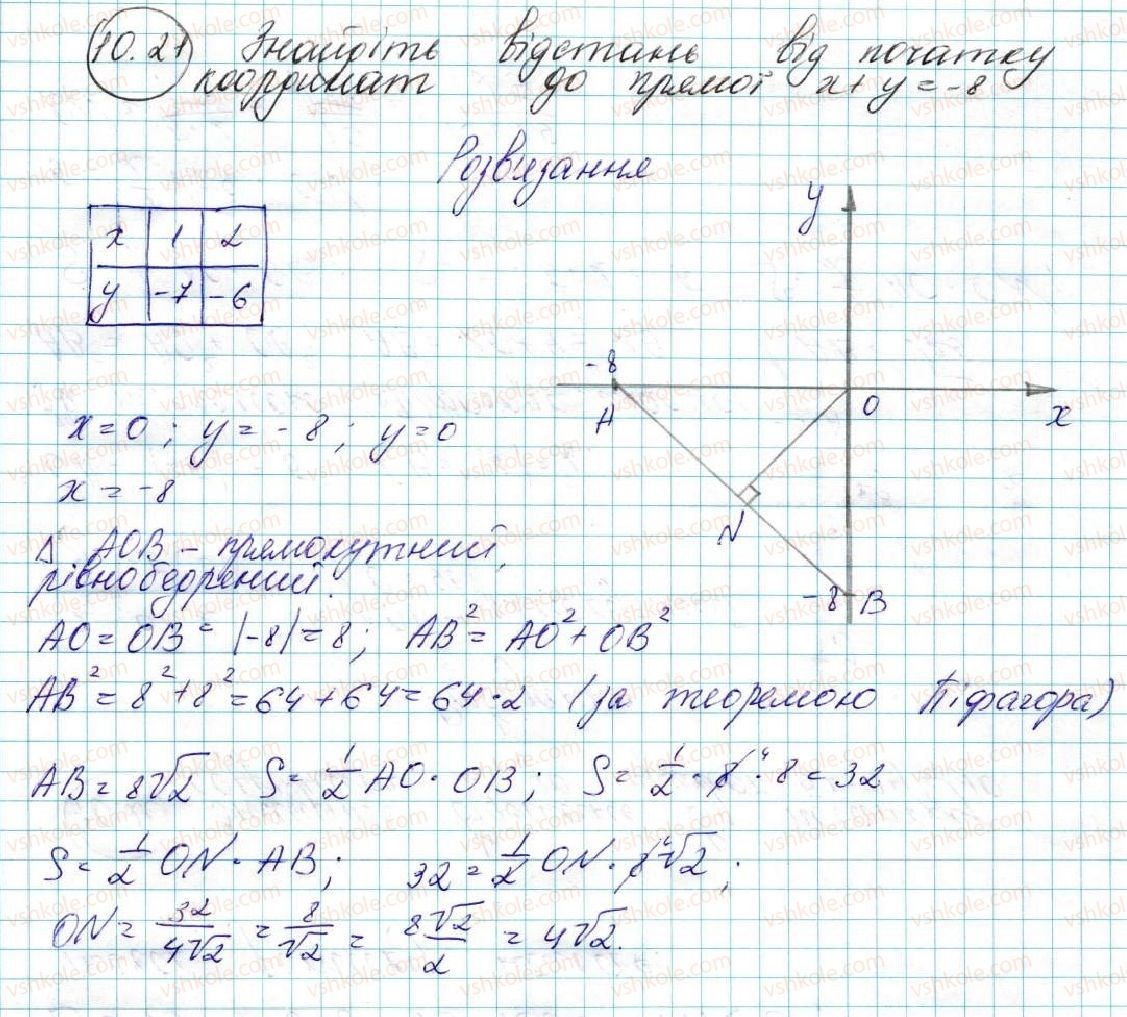 10.21 Знайдіть відстань від початку
координат до прямої x + y = -8
Розв'язання
x 1 2
y -7 -6
y
-8
A
O
x
N
-8 B
x = 0; y = -8; y = 0
x = -8
Δ AOB – прямокутний,
рівнобедрений.
AO = OB = |-8| = 8; AB² = AO² + OB²
AB² = 8² + 8² = 64 + 64 = 64·2 (за теоремою Піфагора)
AB = 8√2 S = 1/2 AO · OB; S = 1/2 · 8 4 · 8 = 32
S = 1/2 ON · AB; 32 = 1/2 ON · 8 4 √2;
ON = 32/4√2 = 8/√2 = 8√2/2 = 4√2.
vshkole.com